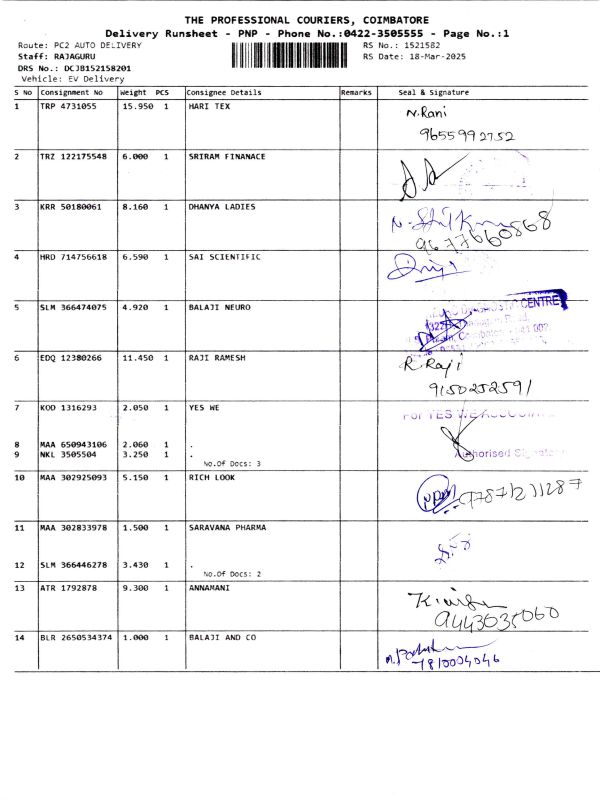 THE PROFESSIONAL COURIERS, COIMBATORE
Delivery Runsheet - PNP - Phone No.:0422-3505555 - Page No.:1
Route: PC2 AUTO DELIVERY RS No.: 1521582
Staff: RAJAGURU RS Date: 18-Mar-2025
DRS No.: DCJB152158201
Vehicle: EV Delivery
S No Consignment No Weight PCS Consignee Details Remarks Seal & Signature
1 TRP 4731055 15.950 1 HARI TEX
N.Rani
9655992752
2 TRZ 122175548 6.000 1 SRIRAM FINANACE
3 KRR 50180061 8.160 1 DHANYA LADIES
9677660868
4 HRD 714756618 6.590 1 SAI SCIENTIFIC
5 SLM 366474075 4.920 1 BALAJI NEURO
CENTRE
6 EDQ 12380266 11.450 1 RAJI RAMESH
R.Raji
9150252591
7 KOD 1316293 2.050 1 YES WE
For YES WE
8 MAA 650943106 2.060 1 .
9 NKL 3505504 3.250 1 .
Authorised
No.Of Docs: 3
10 MAA 302925093 5.150 1 RICH LOOK
11 MAA 302833978 1.500 1 SARAVANA PHARMA
12 SLM 366446278 3.430 1 .
No.Of Docs: 2
13 ATR 1792878 9.300 1 ANNAMANI
9443035060
14 BLR 2650534374 1.000 1 BALAJI AND CO
7810004046